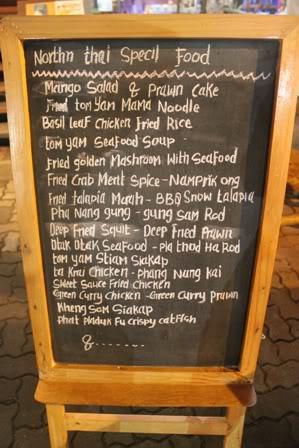 Northn thai Specil Food
Mango Salad & Prawn Cake
Fried tom Yam Mama Noodle
Basil leaf Chicken Fried Rice
tom yam Seafood Soup
Fried golden Mashroom With Seafood
Fried Crab Meat Spice - Namprik ong
Fried talapia Marah - BBQ Snow talapia
Phu Nang gung - gung Sam Rod
Deep Fried Squit - Deep Fried Prawn
Otak Otak Seafood - Pla thod Ha Rod
tom yam Stiam Siakap
ta Krai Chicken - phang Nang kai
Sweet Sauce Fried Chicken
Green Curry Chicken - Green Curry Prawn
Kheng Som Siakap
Phat Pladuk Fu crispy catfish
&.......